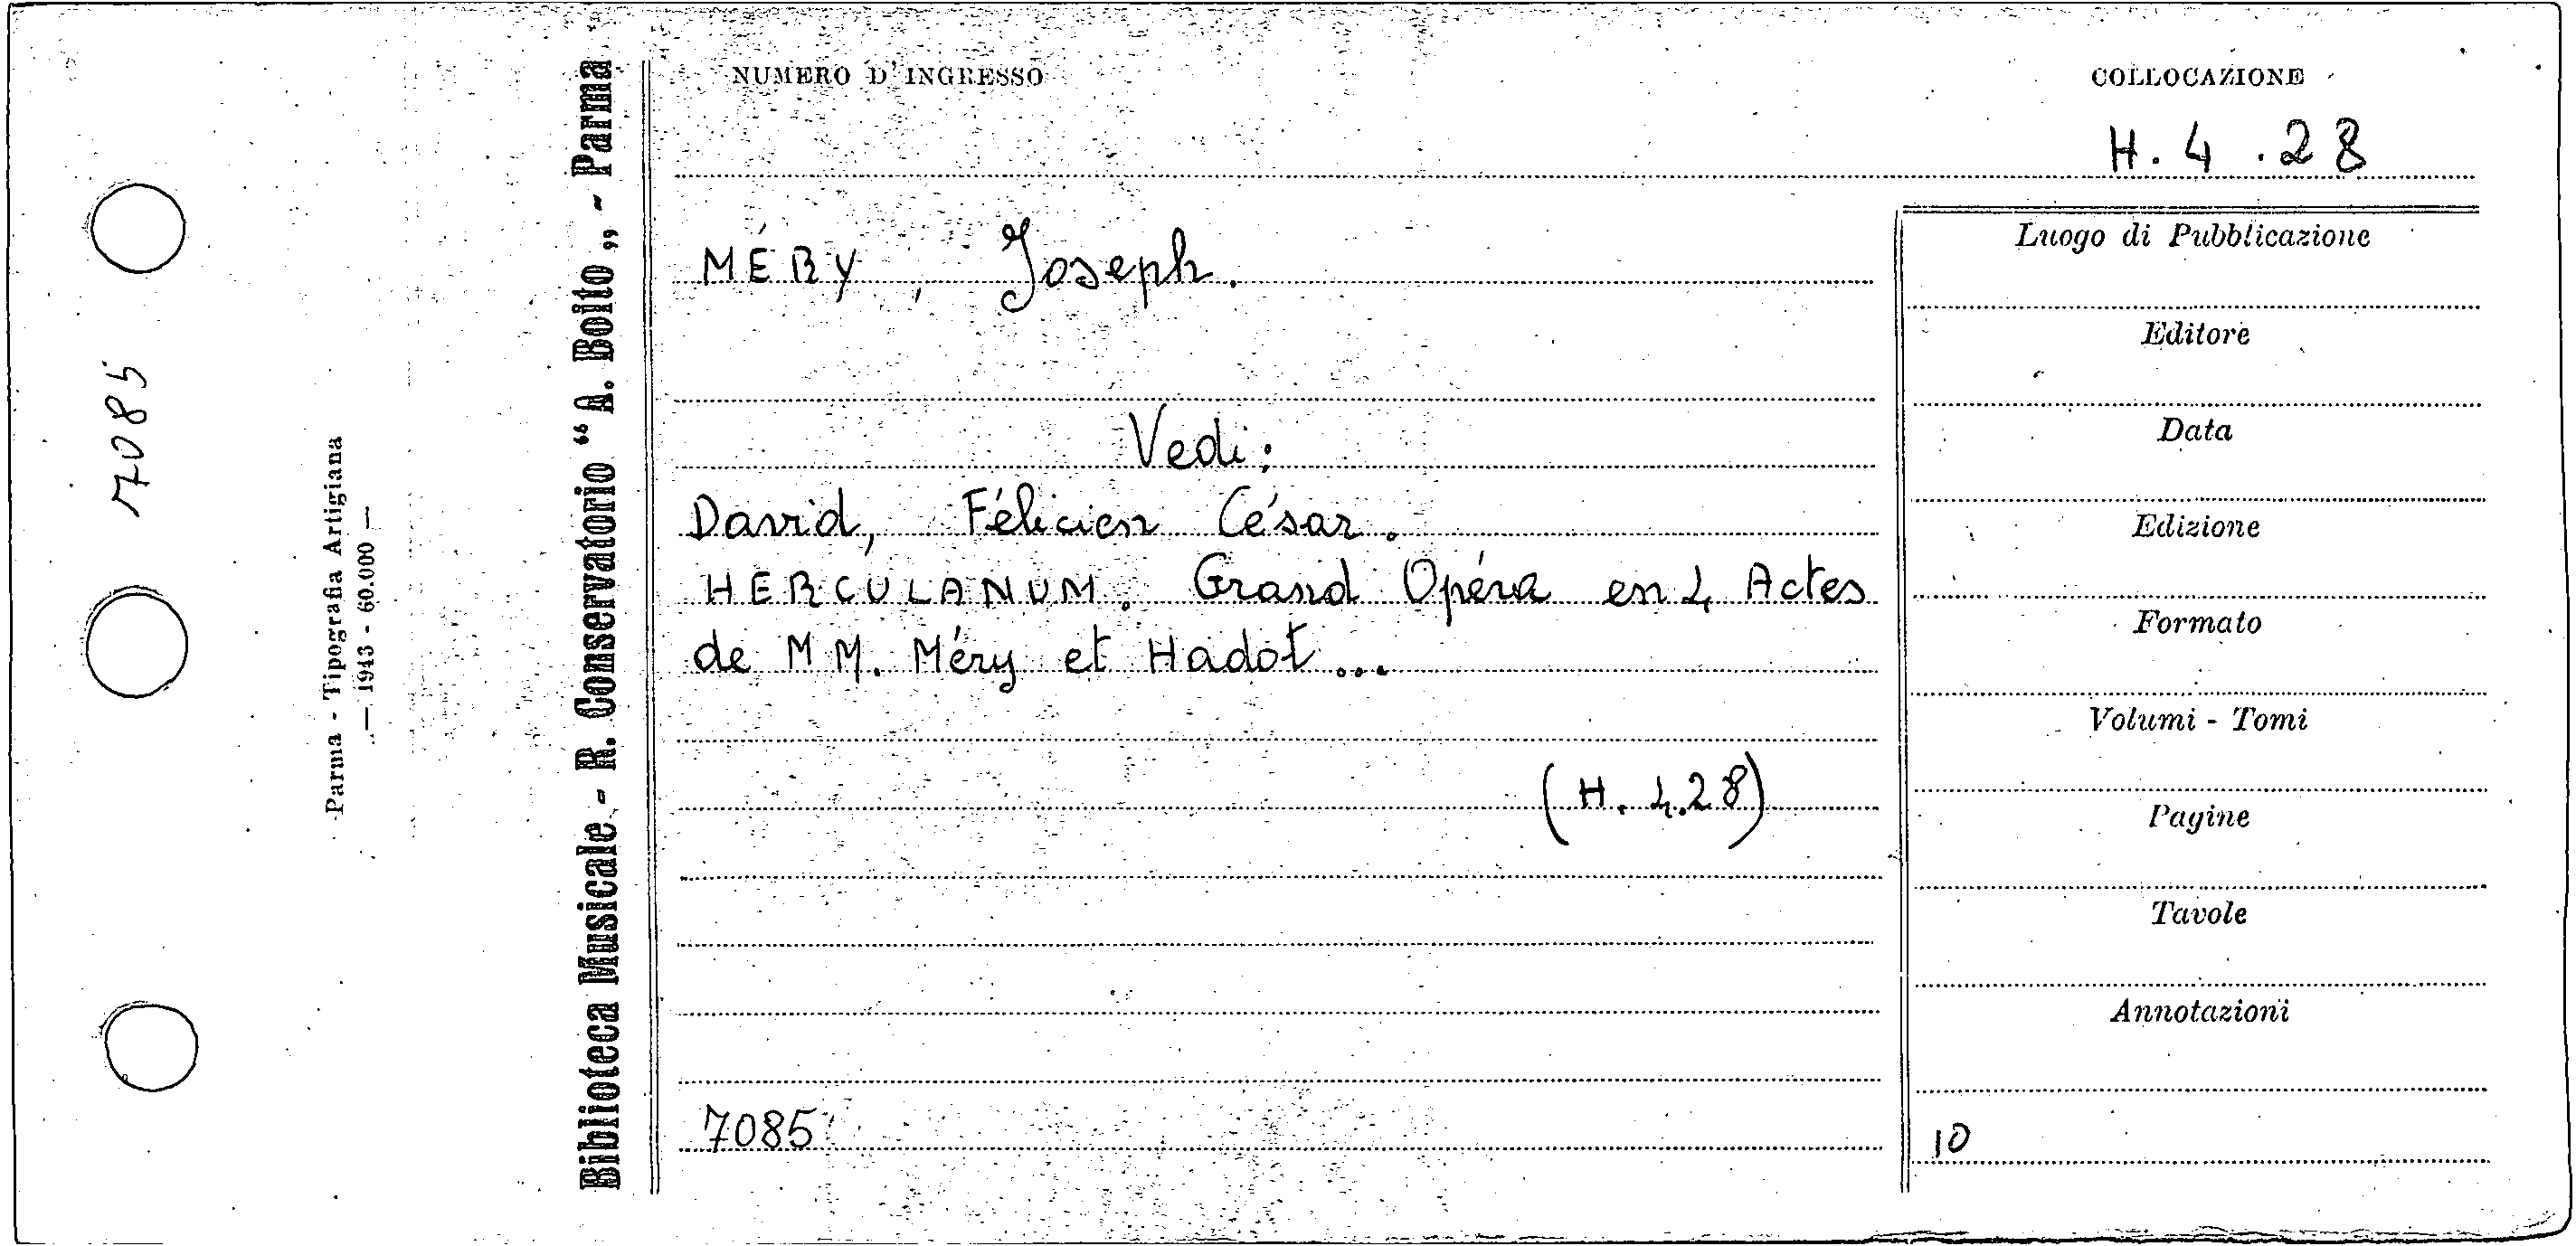 7085
Parma - Tipografia Artigiana
— 1943 - 60.000 —
Biblioteca Musicale - R. Conservatorio “A. Boito„ - Parma
NUMERO D'INGRESSO
COLLOCAZIONE
H. 4 . 28
MÉRY, Joseph.
Vedi:
David, Félicien César.
HERCULANUM. Grand Opéra en 4 Actes
de MM. Méry et Hadot...
(H. 4.28)
7085
Luogo di Pubblicazione
Editore
Data
Edizione
Formato
Volumi - Tomi
Pagine
Tavole
Annotazioni
10